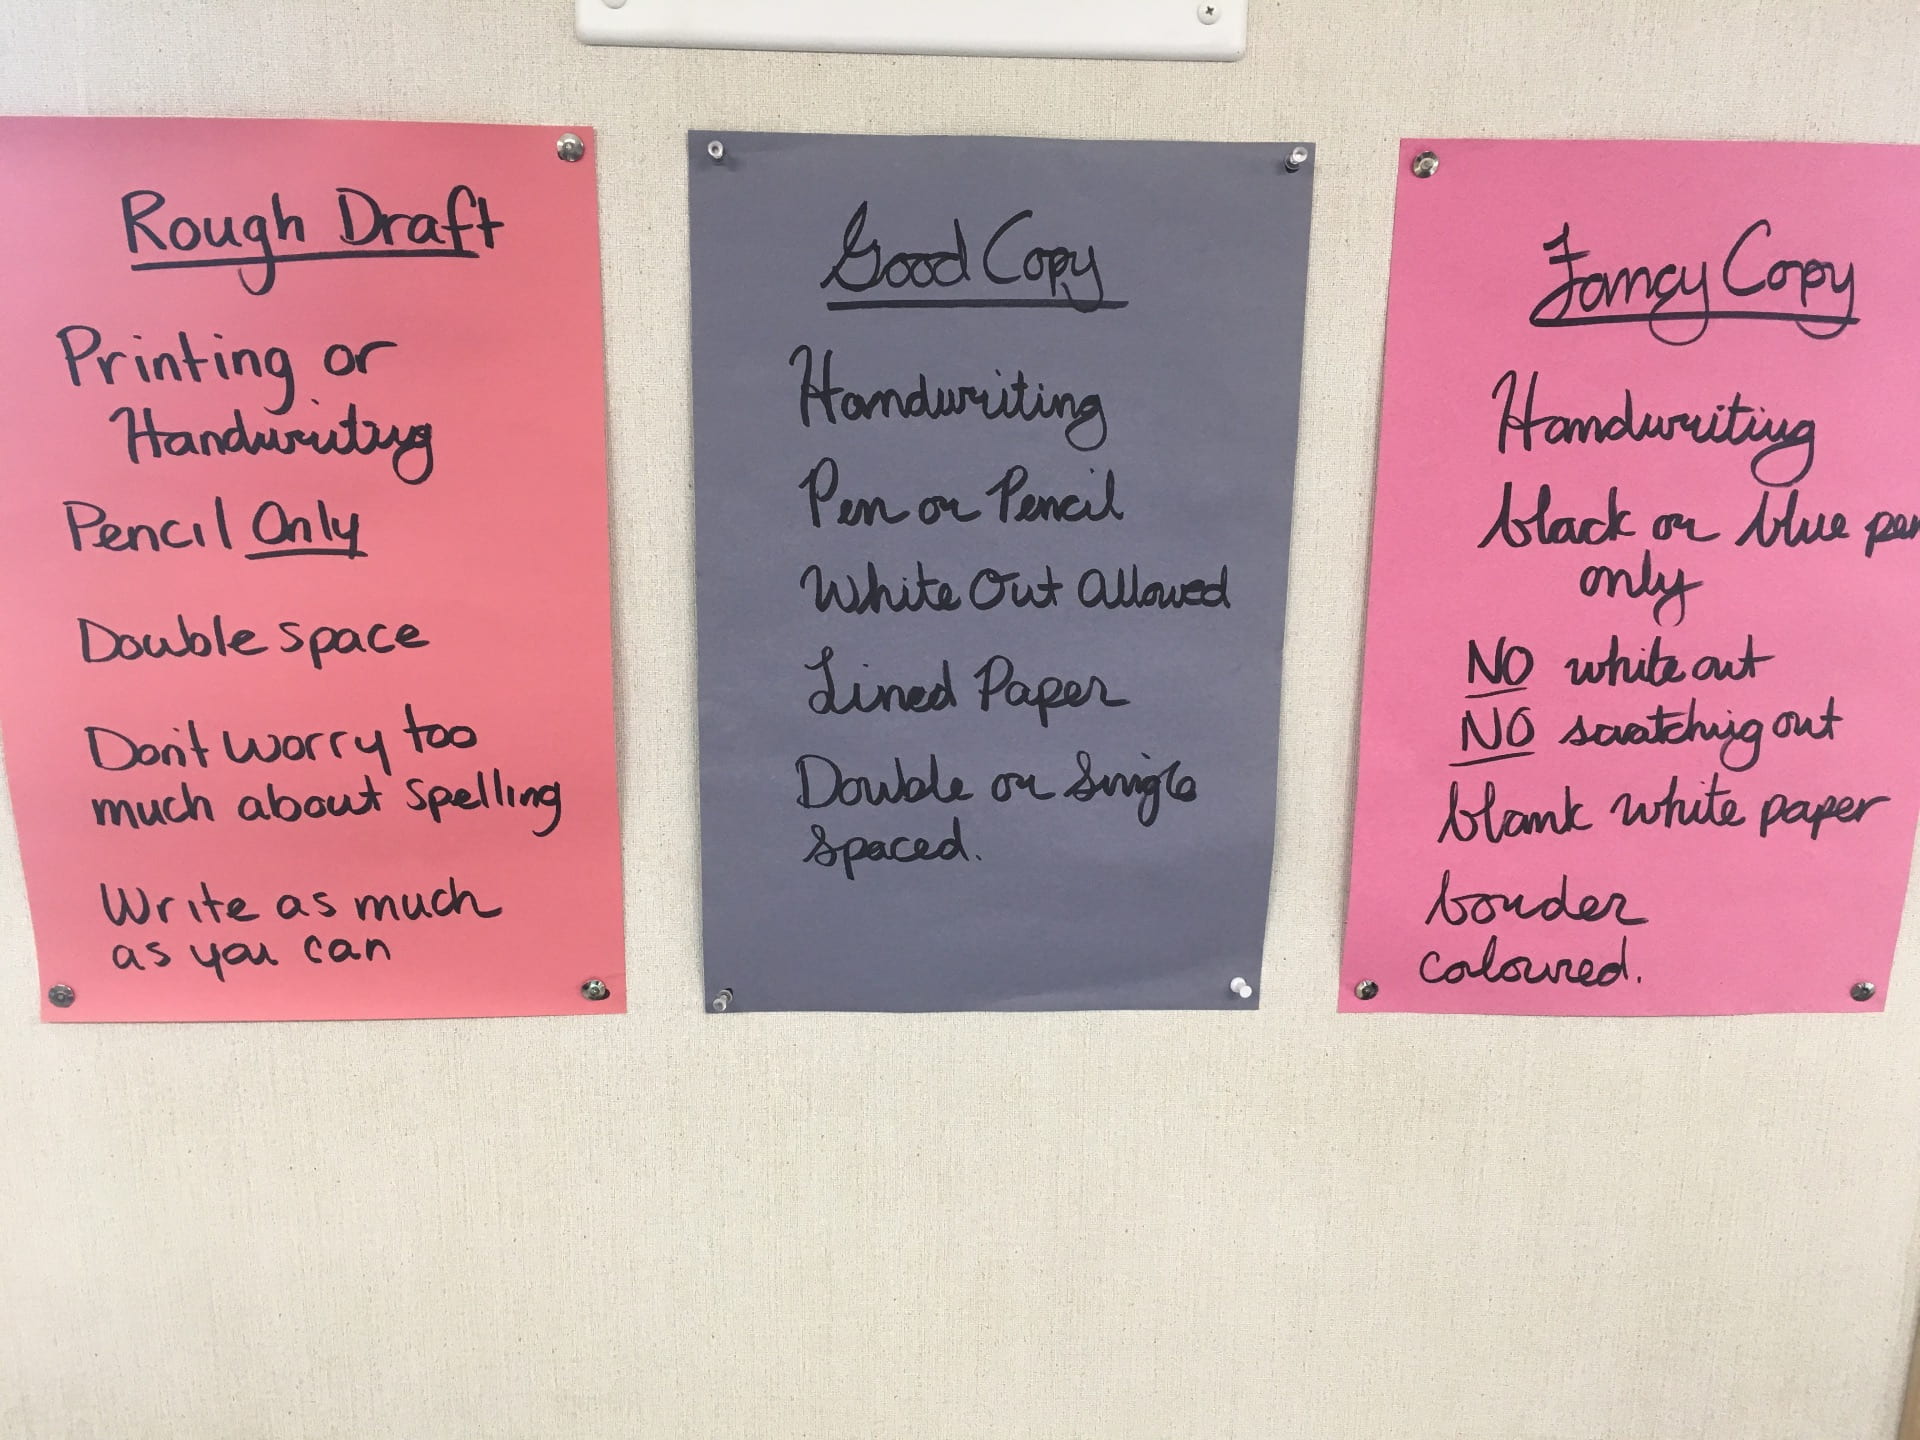 Rough Draft
Printing or
Handwriting
Pencil Only
Double space
Don't worry too
much about spelling
Write as much
as you can
Good Copy
Handwriting
Pen or Pencil
White Out Allowed
Lined Paper
Double or Single
spaced.
Fancy Copy
Handwriting
black or blue pen
only
NO white out
NO scratching out
blank white paper
border
coloured.